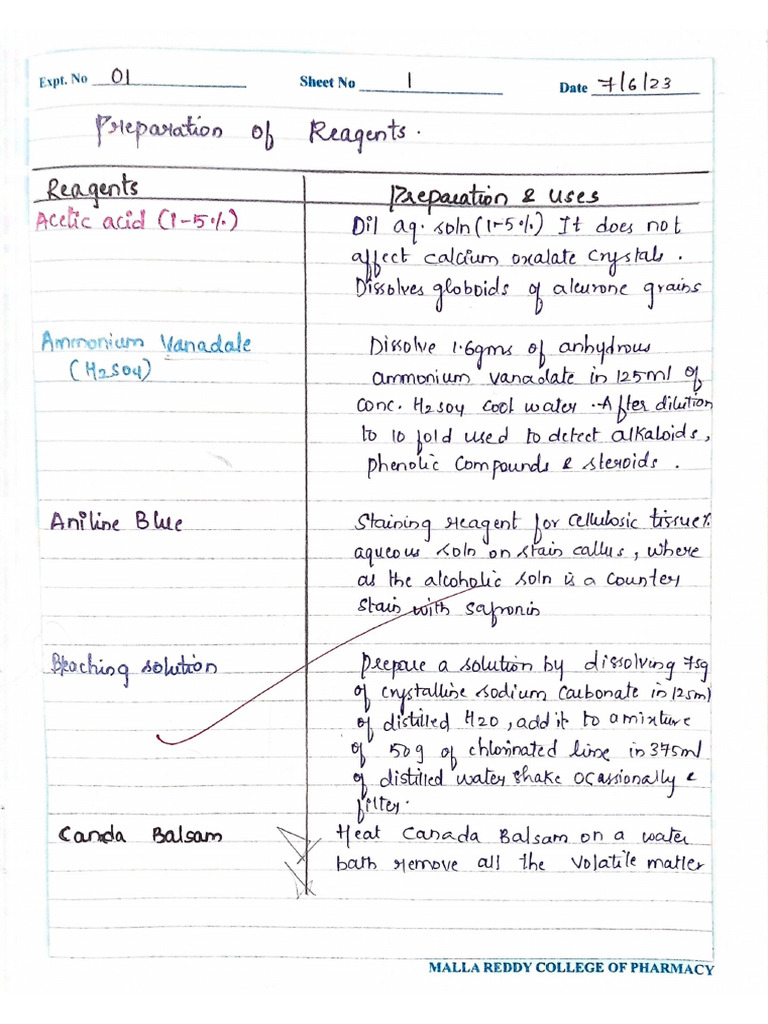 Expt. No 01 Sheet No 1 Date 7/6/23
Preparation of Reagents.
Reagents Preparation & Uses
Acetic acid (1-5%) Dil aq. soln (1-5%) It does not
affect calcium oxalate crystals.
Dissolves globoids of aleurone grains
Ammonium Vanadale Dissolve 1.6gms of anhydrous
(H2SO4) ammonium vanadate in 125ml of
conc. H2SO4 cool water. After dilution
to 10 fold used to detect alkaloids,
phenolic compounds & steroids.
Aniline Blue Staining reagent for cellulosic tissue1%
aqueous soln on stain callus, where
as the alcoholic soln is a counter
stain with safronin
Beaching solution Prepare a solution by dissolving 75g
of crystalline sodium carbonate in 125ml
of distilled H2O, add it to a mixture
of 50g of chlorinated lime in 375ml
of distilled water shake ocassionally &
filter.
Canda Balsam Heat Canada Balsam on a water
bath remove all the volatile matter
MALLA REDDY COLLEGE OF PHARMACY